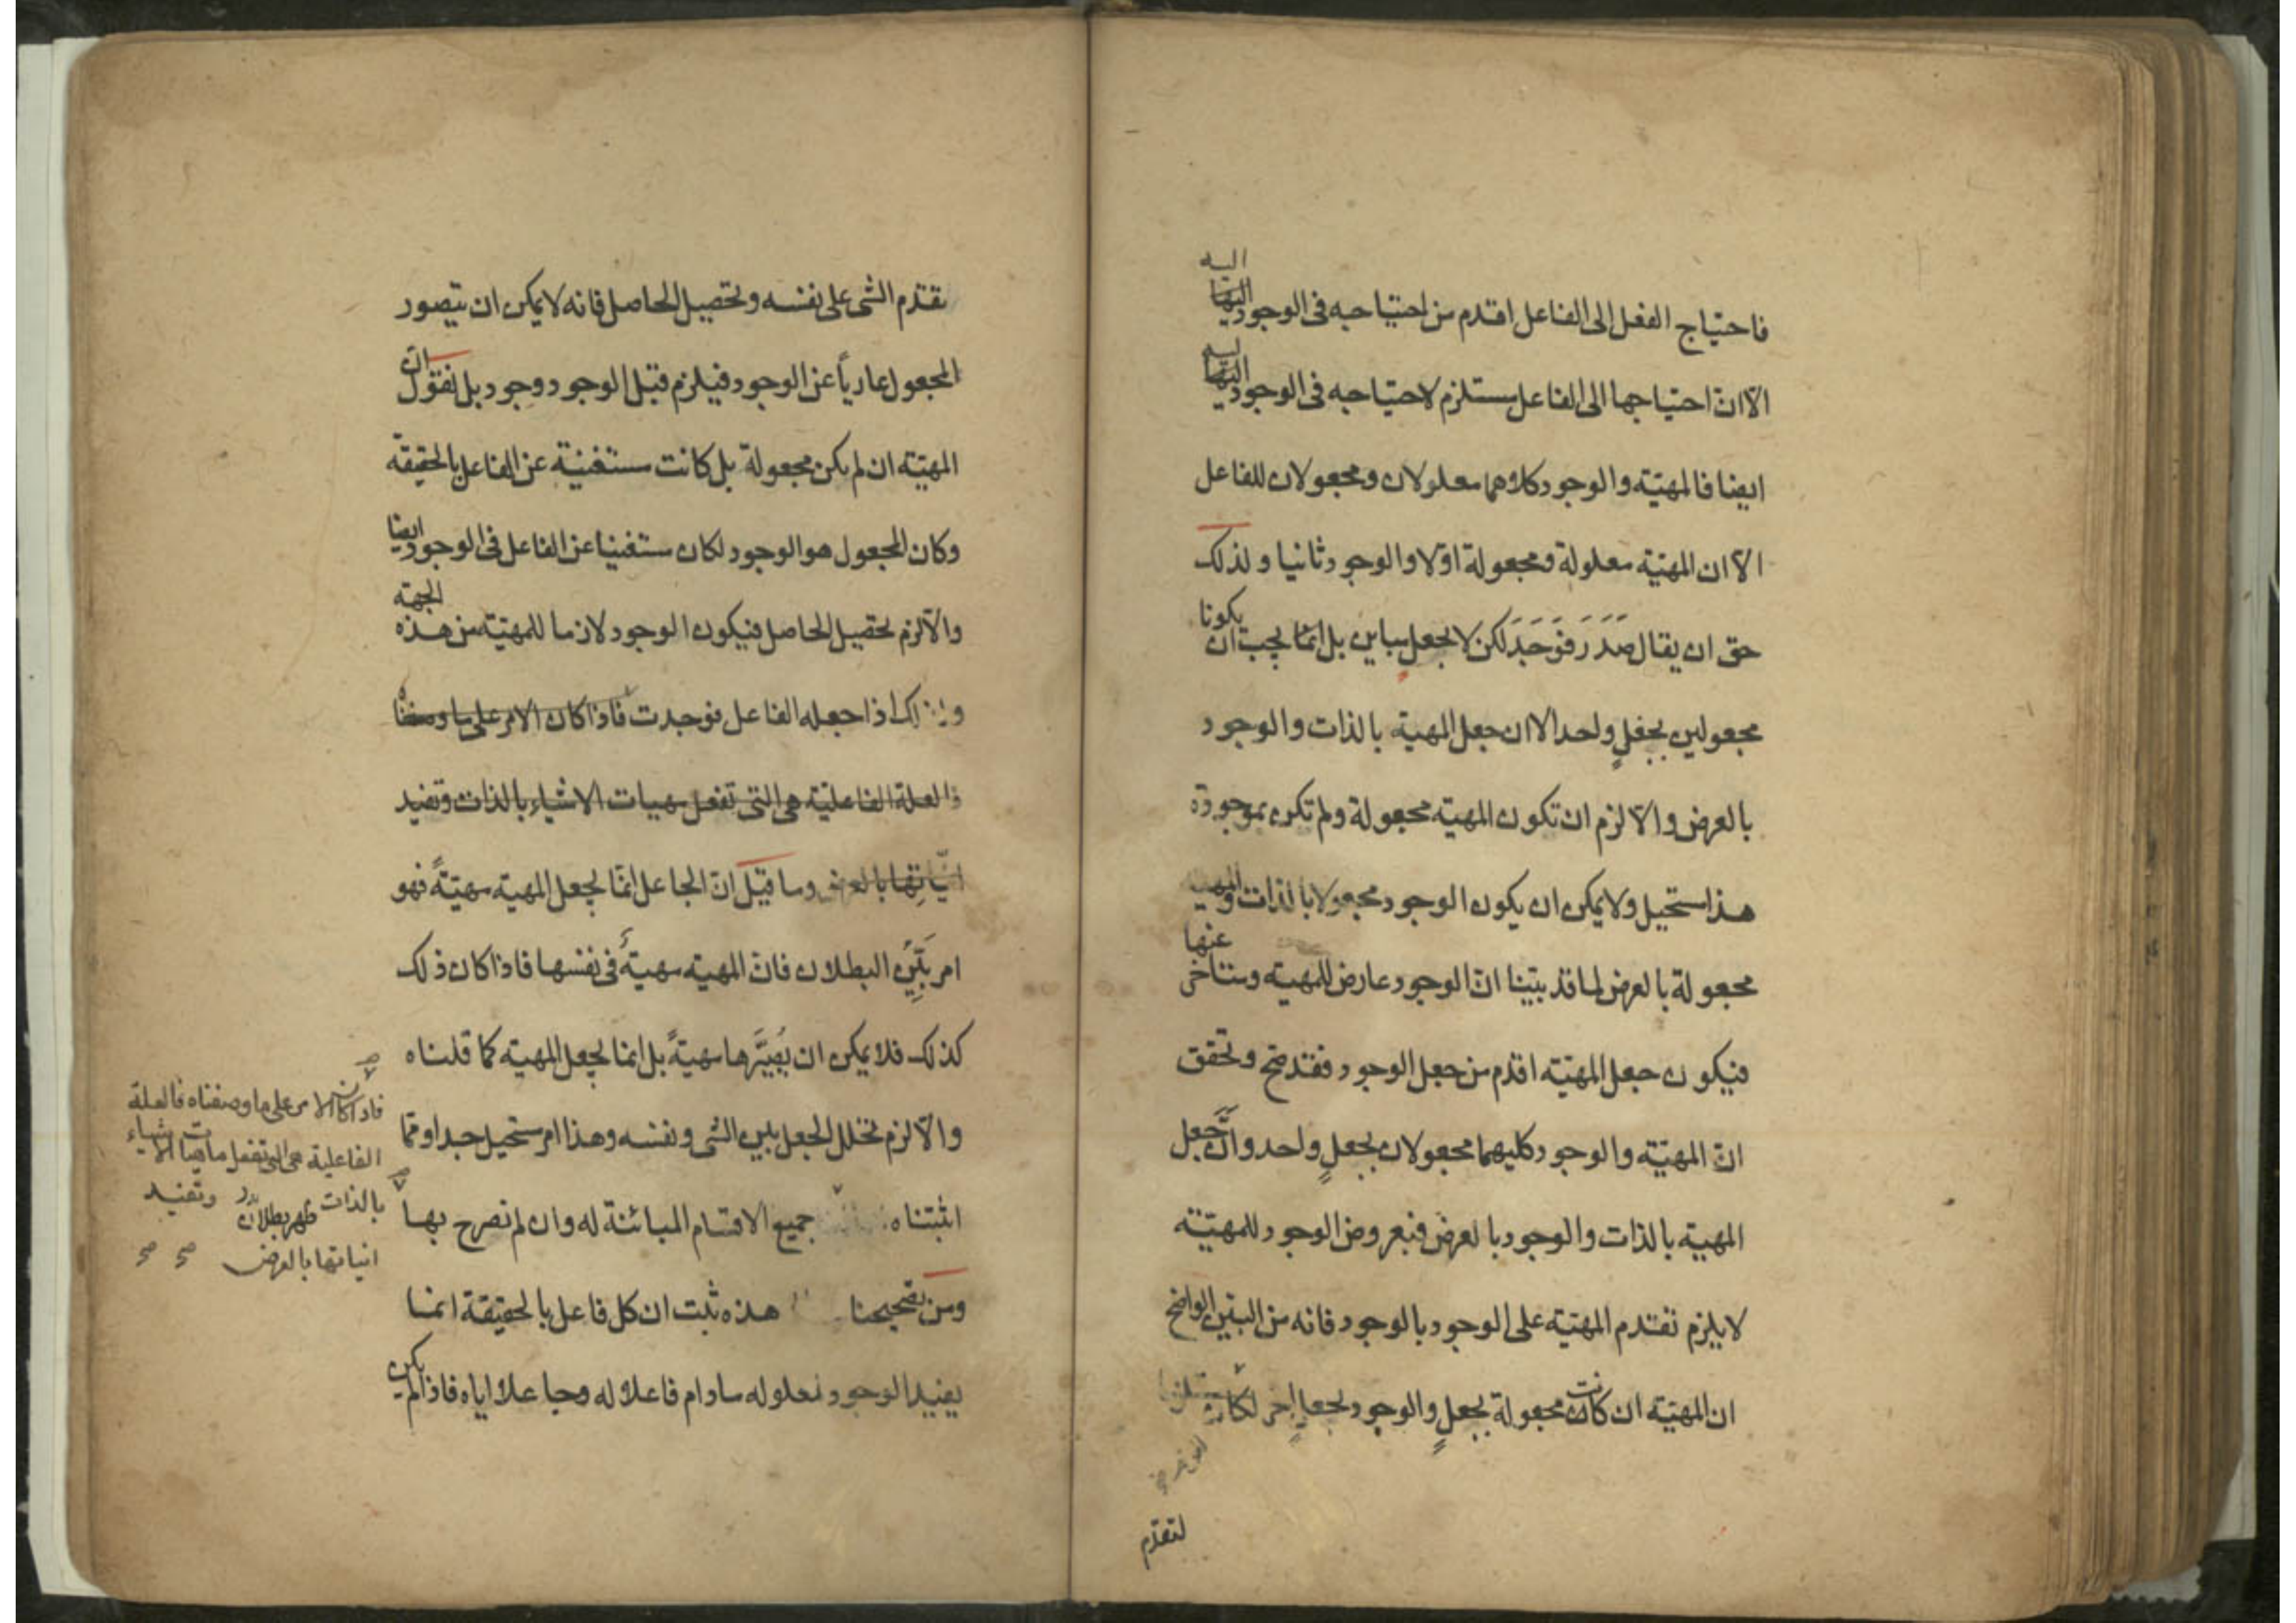 اليه
فاحتياج الفعل الى الفاعل اقدم من احتياجه فى الوجود اليها
اليه
الّا انّ احتياجها الى الفاعل مستلزم لاحتياجه فى الوجود اليها
ايضا فالمهيّة والوجود كلاهما معلولان ومجعولان للفاعل
الّا ان المهيّة معلولة ومجعولة اوّلا والوجود ثانيا ولذلك
حق ان يقال صَدَرَ فَوَجَدَ لكن لا بجعل مباين بل انّما يجب ان يكونا
مجعولين بجعلٍ واحد الا ان جعل المهيّة بالذات والوجود
بالعرض والّا لزم ان تكون المهيّة مجعولة ولم تكن بموجودة
هذا مستحيل ولا يمكن ان يكون الوجود مجعولا بالذات والمهية
مجعولة بالعرض لما قد بيّنا انّ الوجود عارض للمهيّة ومتأخر عنها
فيكون جعل المهيّة اقدم من جعل الوجود فقد صح وتحقق
انّ المهيّة والوجود كليهما مجعولان بجعلٍ واحد وانّ جعل
المهيّة بالذات والوجود بالعرض فبعروض الوجود للمهيّة
لا يلزم تقدم المهيّة على الوجود بالوجود فانه من البيّن الواضح
ان المهيّة ان كانت مجعولة بجعلٍ والوجود بجعلٍ اخر لكان
لتقدّم
تقدّم الشى على نفسه وتحصيل الحاصل فانه لا يمكن ان يتصور
المجعول عارياً عن الوجود فيلزم قبل الوجود وجود بل نقول انّ
المهيّة ان لم يكن مجعولة بل كانت مستغنية عن الفاعل بالحقيقة
وكان المجعول هو الوجود لكان مستغنيا عن الفاعل فى الوجود ايضا
والّا لزم تحصيل الحاصل فيكون الوجود لازما للمهيّة من هذه الجهة
اذا جعله الفاعل فوجدت فاذا كان الامر على ما وصفنا
فالعلة الفاعليّة هى التى تفعل مهيات الاشياء بالذات وتفيد
انيّاتها بالعرض وما قيل انّ الجاعل انّما يجعل المهيّة مهيّةً فهو
امر بَيِّن البطلان فانّ المهيّة مهيّةٌ فى نفسها فاذا كان ذلك
كذلك فلا يمكن ان يُصَيِّرها مهيّةً بل انما يجعل المهيّة كما قلناه
والّا لزم تخلل الجعل بين الشى ونفسه وهذا امر مستحيل جدا وممّا
اثبتناه جميع الاقسام المبائنة له وان لم نصرح بها
ومن تصحيحنا هذه ثبت ان كل فاعل بالحقيقة انما
يفيد الوجود لمعلوله مادام فاعلا له وجاعلا اياه فاذا لم يكن
فاذا كان الامر على ما وصفناه فالعلة
الفاعلية هى التى تفعل ماهيات الاشياء
بالذات وتفيد
ظهر بطلان
انياتها بالعرض صح صح